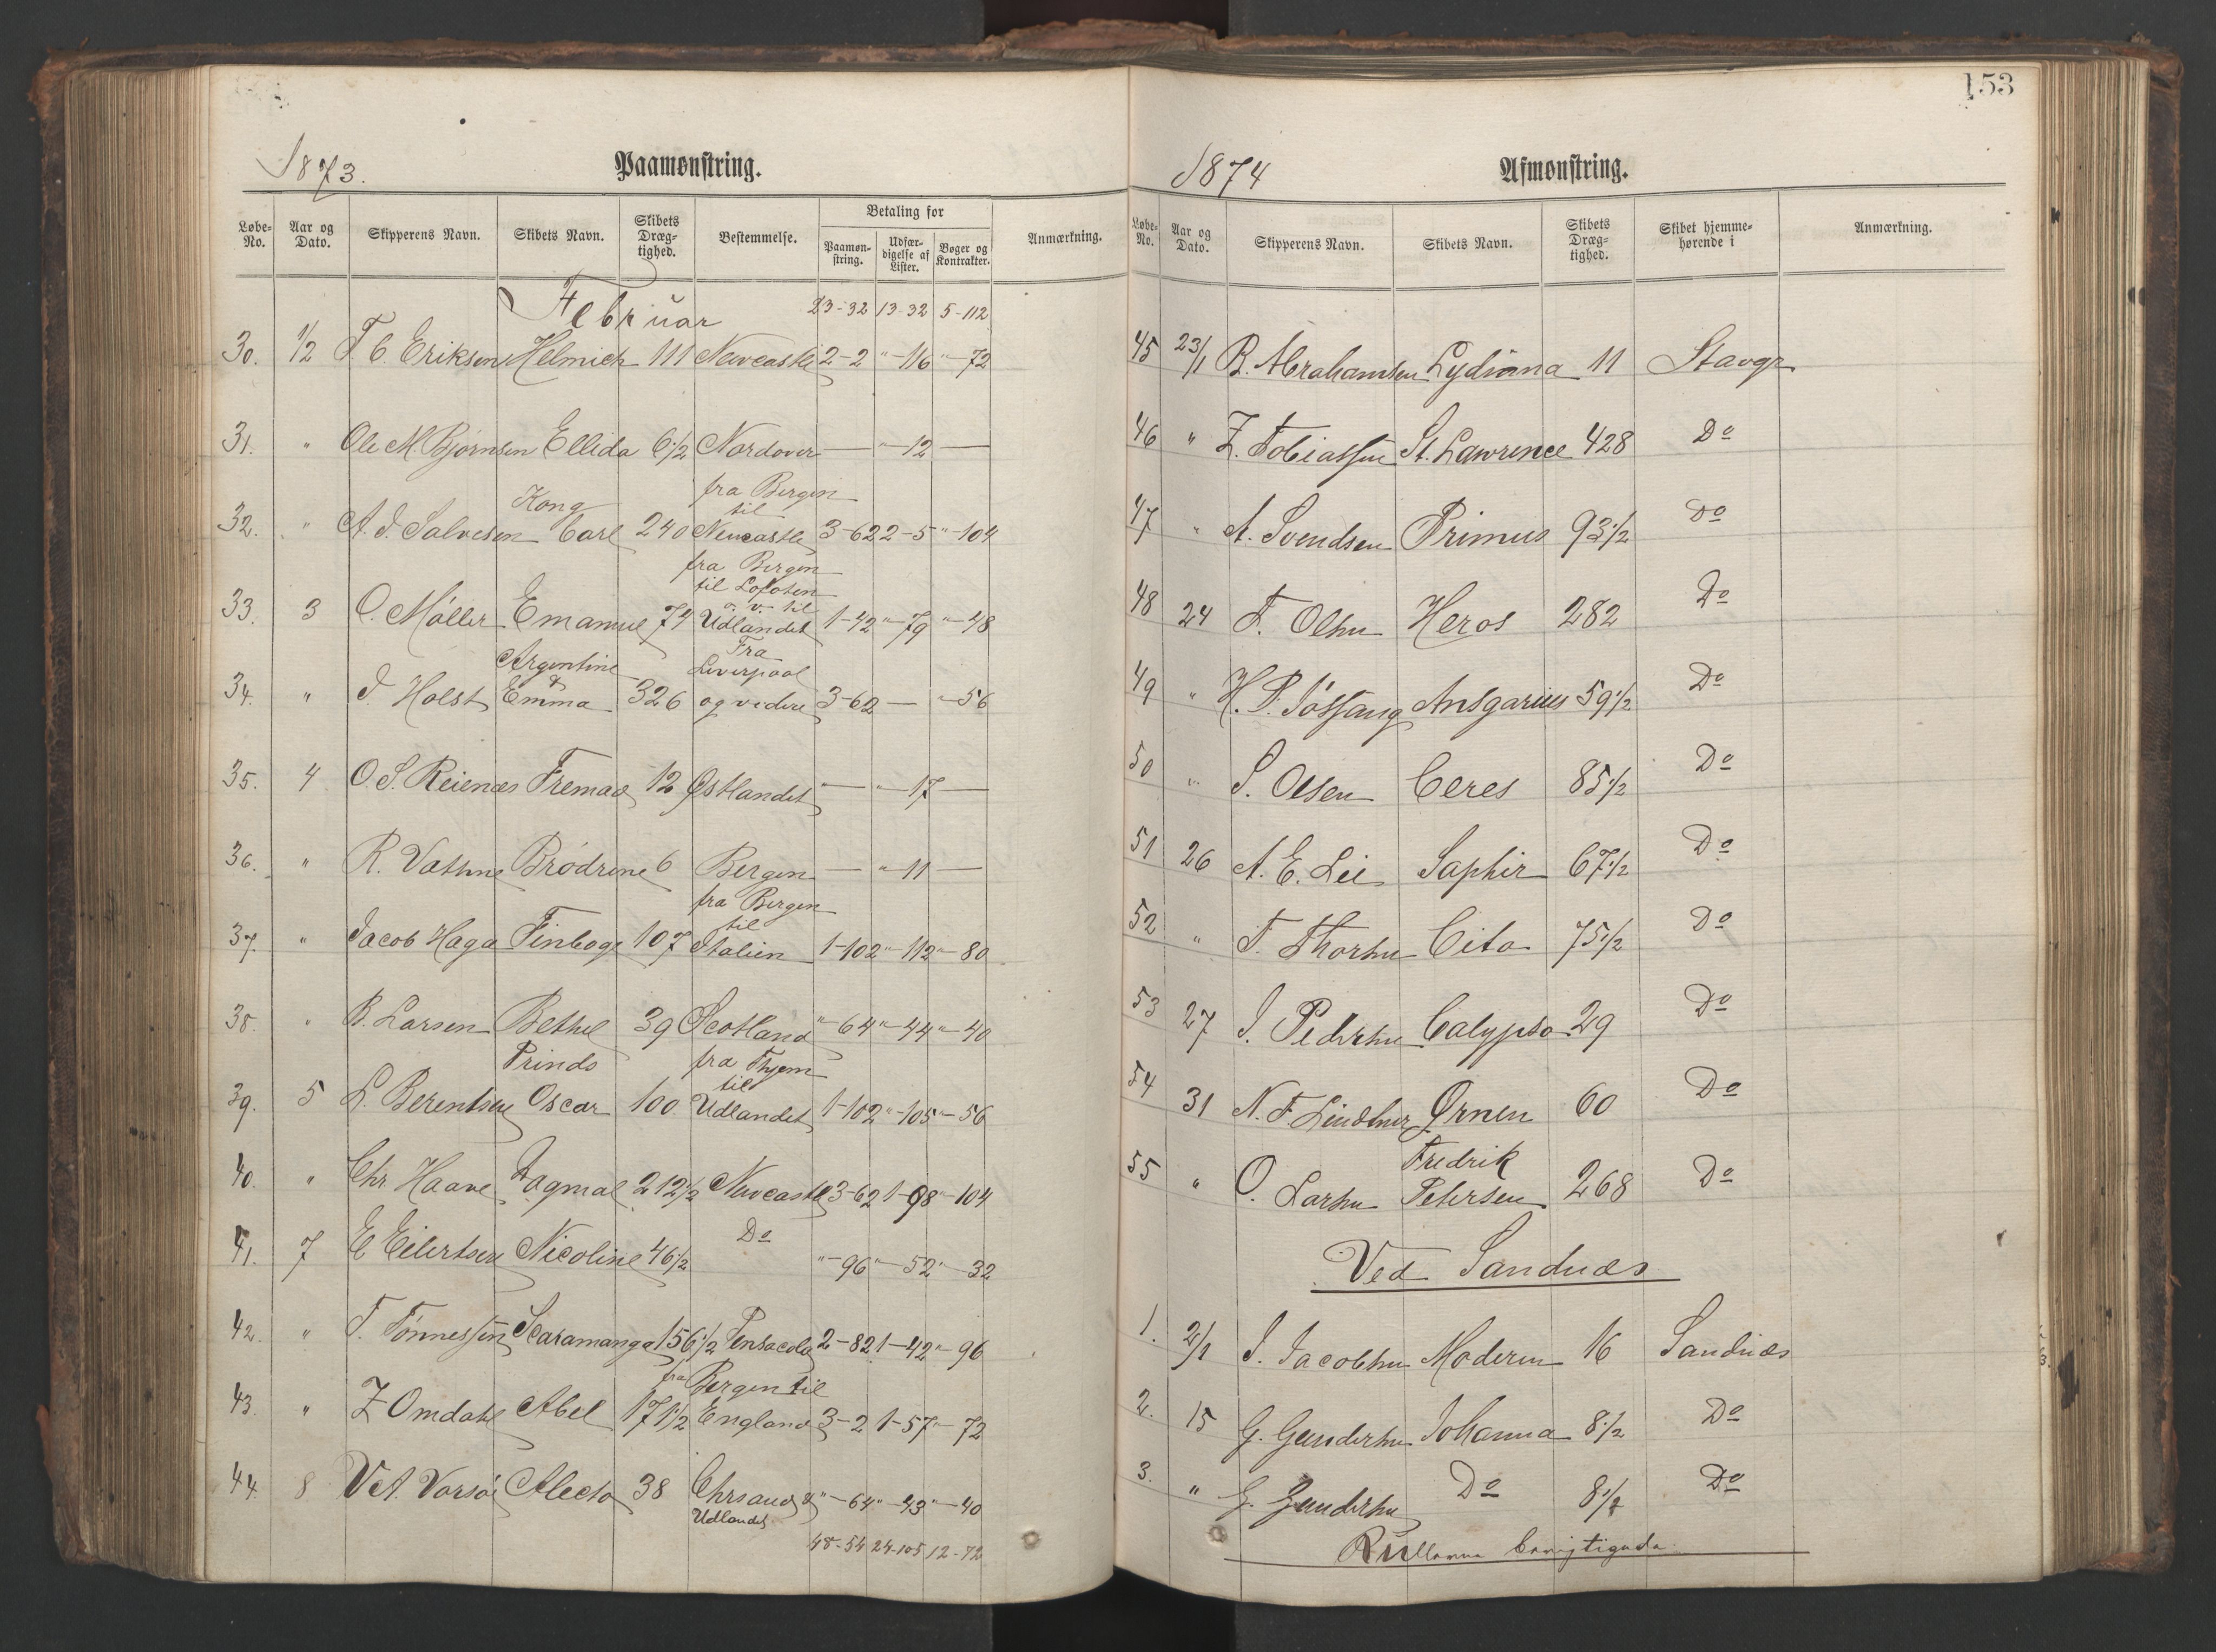 1873.
Paamønstring.
Løbe-No. Aar og Dato. Skipperens Navn. Skibets Navn. Skibets Dræg-tighed. Bestemmelse. Betaling for Paamøn-string. Udfær-digelse af Lister. Bøger og Kontrakter. Anmærkning.
Februar 23-32 13-32 5-112
30. 1/2 T. C. Eriksen Helmich 111 Newcastle 2-2 "-116 "-72
31. " Ole M. Bjørnsen Ellida 6 1/2 Nordover — "-12 —
Kong fra Bergen til
32. " A. J. Salvesen Carl 240 Newcastle 3-62 2-5 "-104
fra Bergen
til Lofoten
o. v. til
33. 3 O. Møller Emanuel 74 Udlandet 1-42 "-79 "-48
Argentine Fra Liverpool
34. " J Holst & Emma 326 og videre 3-62 — "-56
35. 4 O. S. Reienæs Fremad 12 Østlandet — "-17 —
36. " R. Vathne Brødrene 6 Bergen — "-11 —
fra Bergen til
37. " Jacob Haga Finboge 107 Italien 1-102 "-112 "-80
38. " B. Larsen Bethel 39 Scotland "-64 "-44 "-40
Prinds fra Thjem til
39. 5 L. Berentsen Oscar 100 Udlandet 1-102 "-105 "-56
40. " Chr. Haave Dagmar 212 1/2 Newcastle 3-62 1-98 "-104
41. 7 E Eilertsen Nicoline 46 1/2 Do "-96 "-52 "-32
42. " T. Tønnessen Scaramanga 156 1/2 Pensacola 2-82 1-42 "-96
fra Bergen til
43. " Z Omdahl Abel 171 1/2 England 3-2 1-57 "-72
44. 8 V. A. Vorsøe Alecto 38 Chrsand & "-64 "-43 "-40
Udlandet
48-54 24-105 12-72
153
1874
Afmønstring.
Løbe-No. Aar og Dato. Skipperens Navn. Skibets Navn. Skibets Dræg-tighed. Skibet hjemme-hørende i Anmærkning.
45 23/1 B. Abrahamsen Lydiana 11 Stavgr
46 " Z. Tobiassen St. Lawrence 428 Do
47 " A. Svendsen Primus 93 1/2 Do
48 24 T. Olsen Heros 282 Do
49 " H. P. Ansgarius 59 1/2 Do
50 " S. Olsen Ceres 85 1/2 Do
51 26 A. E. Lie Saphir 67 1/2 Do
52 " T. Thorsen Cito 75 1/2 Do
53 27 J. Pedersen Calypso 29 Do
54 31 N. F. Lindtner Ørnen 60 Do
Fredrik
55 " O. Larsen Petersen 268 Do
Ved Sandnæs
1. 2/1 J. Jacobsen Moderen 16 Sandnæs
2. 15 G. Gundersen Johanna 8 1/2 Do
3. " G. Gundersen Do 8 1/2 Do
Rullerne